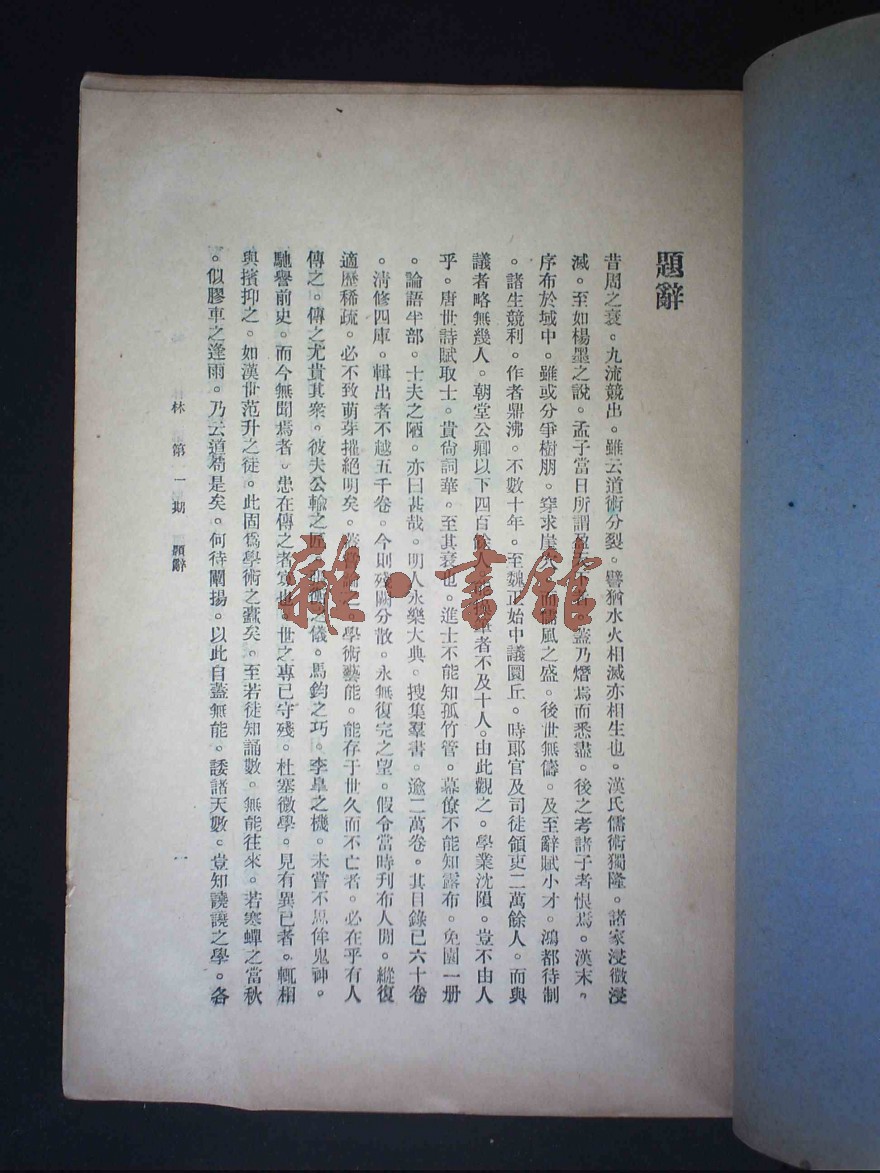 題辭
昔周之衰。九流競出。雖云道術分裂。譬猶水火相滅亦相生也。漢氏儒術獨隆。諸家浸微浸
滅。至如楊墨之說。孟子當日所謂盈天下者。蓋乃熸焉而悉盡。後之考諸子者恨焉。漢末。
序布於域中。雖或分爭樹朋。穿求崖穴。而儒風之盛。後世無儔。及至辭賦小才。鴻都待制
。諸生競利。作者鼎沸。不數十年。至魏正始中議圜丘。時郎官及司徒領吏二萬餘人。而與
議者略無幾人。朝堂公卿以下四百餘人。能操筆者不及十人。由此觀之。學業沈隕。豈不由人
乎。唐世詩賦取士。貴尚詞華。至其衰也。進士不能知孤竹管。幕僚不能知露布。兔園一册
。論語半部。士夫之陋。亦曰甚哉。明人永樂大典。搜集羣書。逾二萬卷。其目錄已六十卷
。清修四庫。輯出者不越五千卷。今則殘闕分散。永無復完之望。假令當時刋布人閒。縱復
適歷稀疏。必不致萌芽摧絕明矣。論之。學術藝能。能存于世久而不亡者。必在乎有人
傳之。傳之尤貴其衆。彼夫公輸之匠。之儀。馬鈞之巧。李臯之機。未嘗不思侔鬼神。
馳譽前史。而今無聞焉者。患在傳之者寡也。世之專已守殘。杜塞微學。見有異已者。輒相
與擯抑之。如漢世范升之徒。此固爲學術之蠹矣。至若徒知誦數。無能往來。若寒蟬之當秋
。似膠車之逢雨。乃云道苟是矣。何待闡揚。以此自蓋無能。諉諸天數。豈知譊譊之學。各
林 第一期 題辭 一
雜·書館